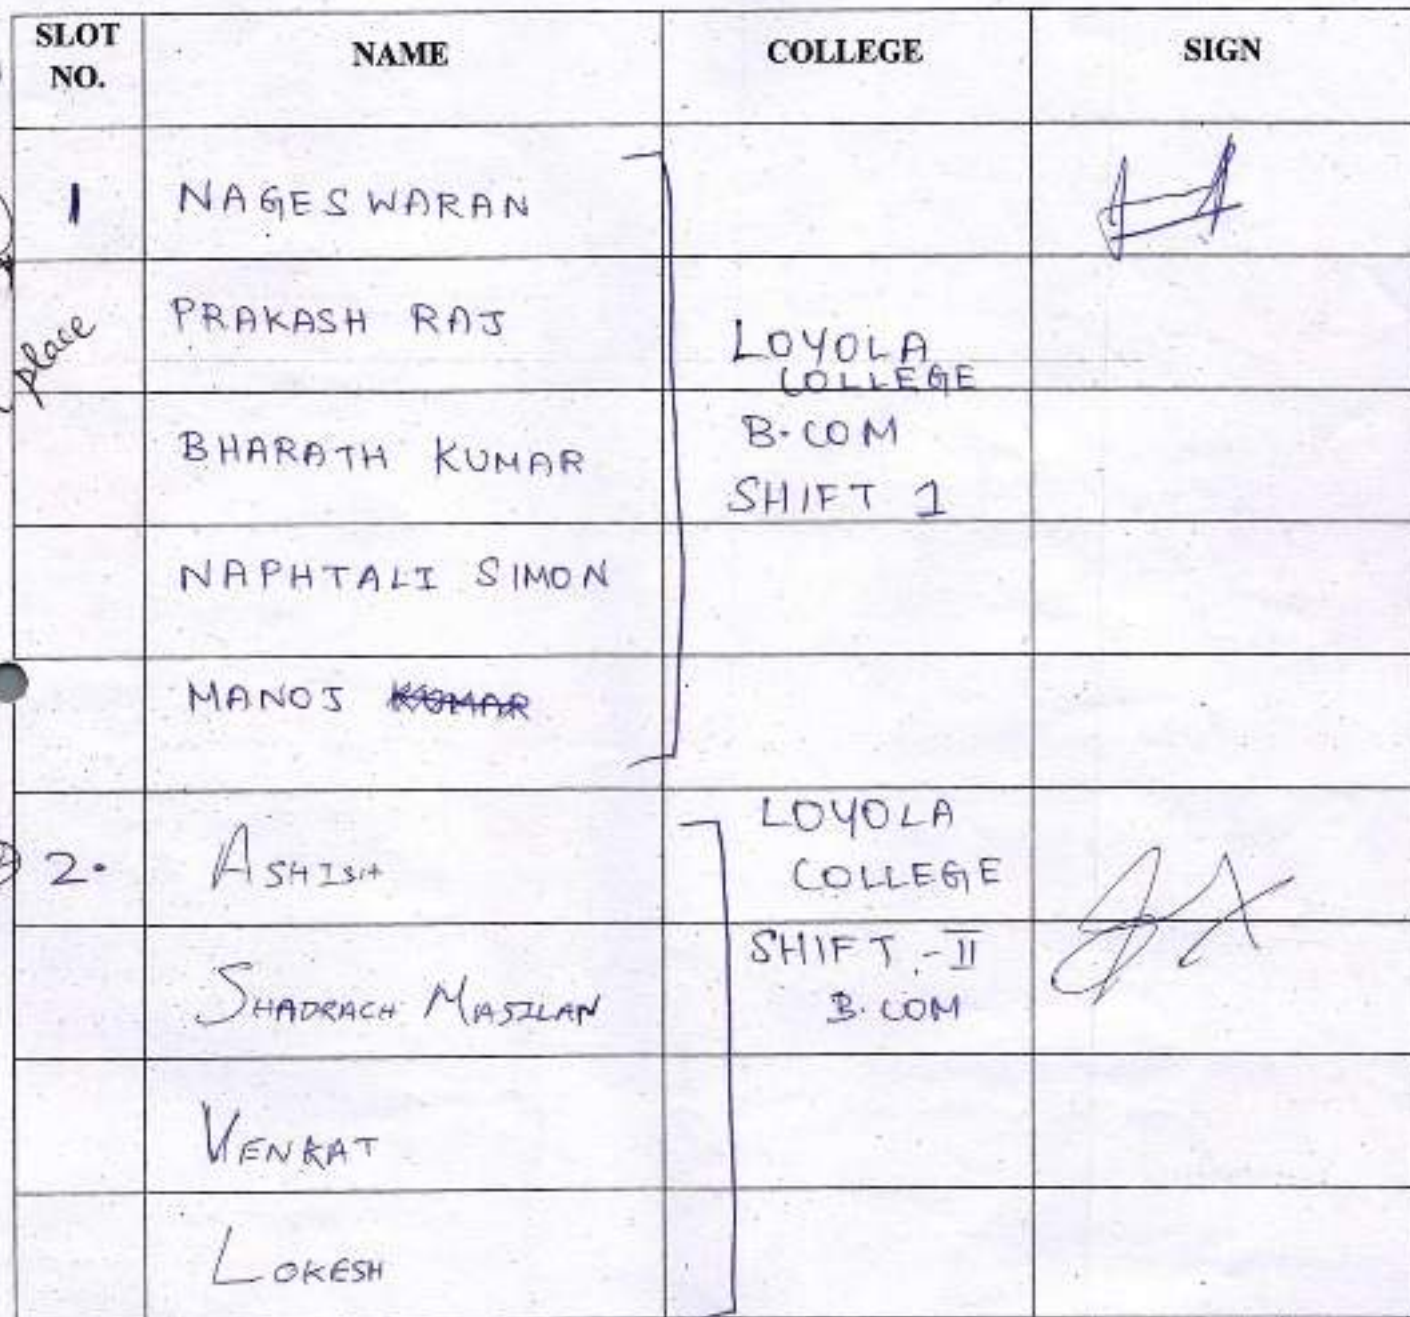 SLOT NO. NAME COLLEGE SIGN
1 NAGESWARAN
place
PRAKASH RAJ
LOYOLA
COLLEGE
BHARATH KUMAR
B.COM
SHIFT 1
NAPHTALI SIMON
MANOJ
LOYOLA
2. ASHISH
COLLEGE
SHIFT.-II
SHADRACH MASILAN
B.COM
VENKAT
LOKESH